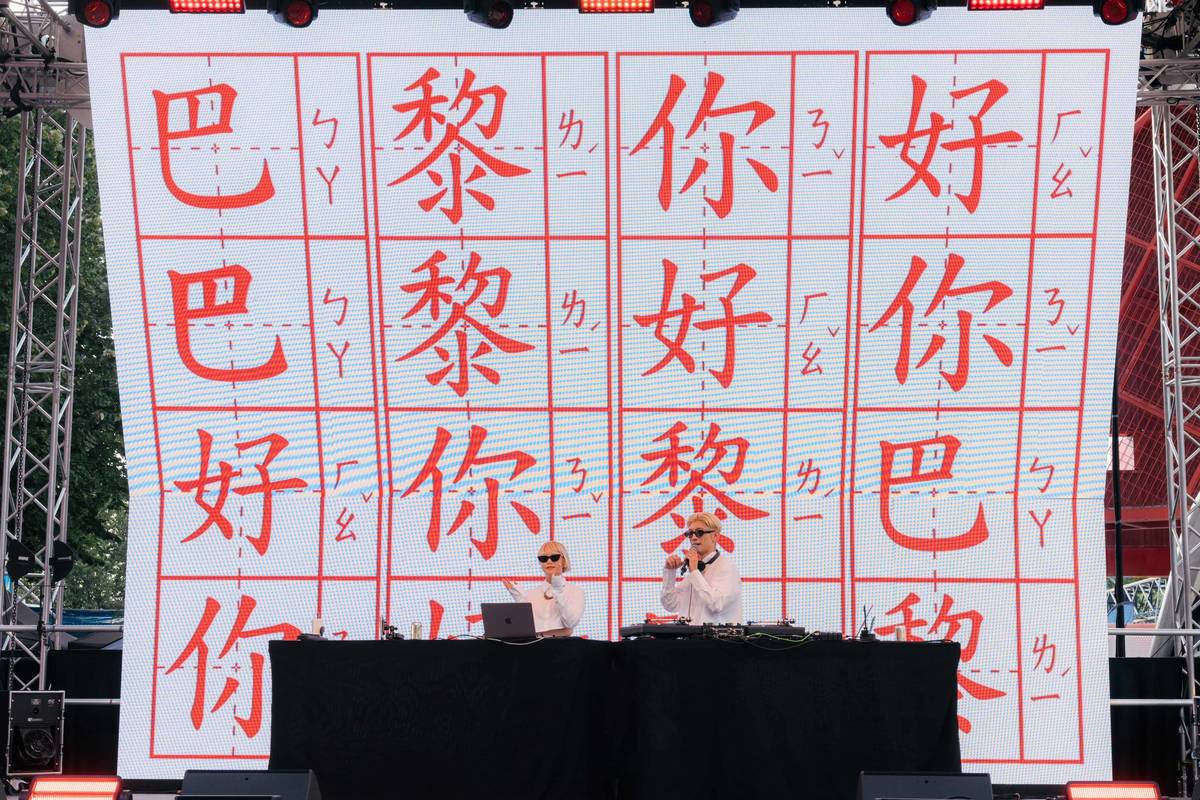 巴 ㄅㄚ 黎 ㄌㄧˊ 你 ㄋㄧˇ 好 ㄏㄠˇ
巴 ㄅㄚ 黎 ㄌㄧˊ 好 ㄏㄠˇ 你 ㄋㄧˇ
好 ㄏㄠˇ 你 ㄋㄧˇ 黎 ㄌㄧˊ 巴 ㄅㄚ
你 黎 ㄌㄧˊ